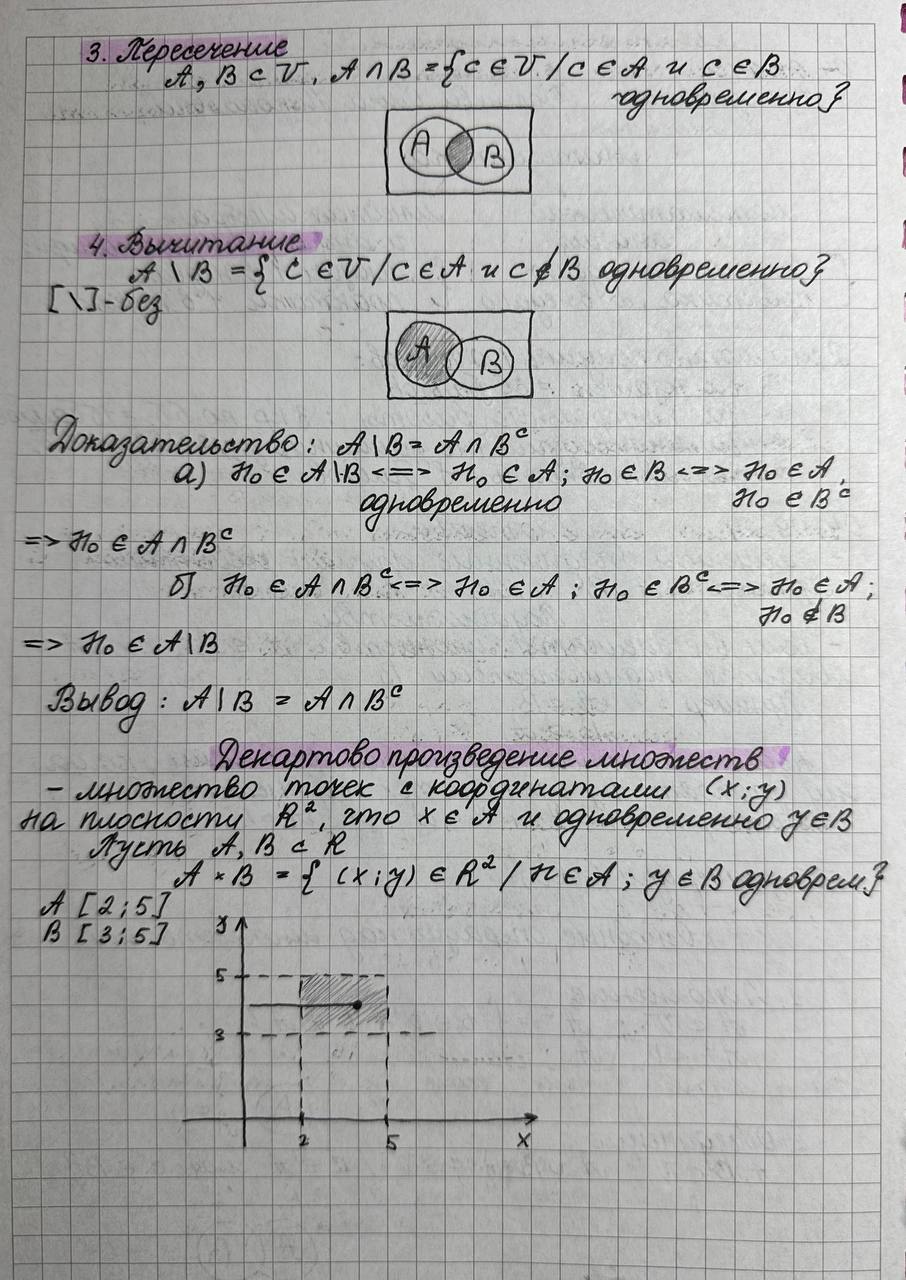 3. Пересечение
A, B ⊂ U, A ∩ B = {c ∈ U / c ∈ A и c ∈ B
одновременно}
A B
4. Вычитание
A \ B = { c ∈ U / c ∈ A и c ∉ B одновременно}
[\] - без
A B
Доказательство: A\B = A ∩ Bᶜ
а) x₀ ∈ A\B <=> x₀ ∈ A; x₀ ∈ B <=> x₀ ∈ A,
одновременно x₀ ∈ Bᶜ
=> x₀ ∈ A ∩ Bᶜ
б) x₀ ∈ A ∩ Bᶜ <=> x₀ ∈ A; x₀ ∈ Bᶜ <=> x₀ ∈ A;
x₀ ∉ B
=> x₀ ∈ A\B
Вывод: A\B = A ∩ Bᶜ
Декартово произведение множеств
- множество точек с координатами (x; y)
на плоскости R², что x ∈ A и одновременно y ∈ B
Пусть A, B ⊂ R
A × B = { (x; y) ∈ R² / x ∈ A; y ∈ B одноврем}
A [2; 5]
B [3; 5]
y
5
3
2 5 x